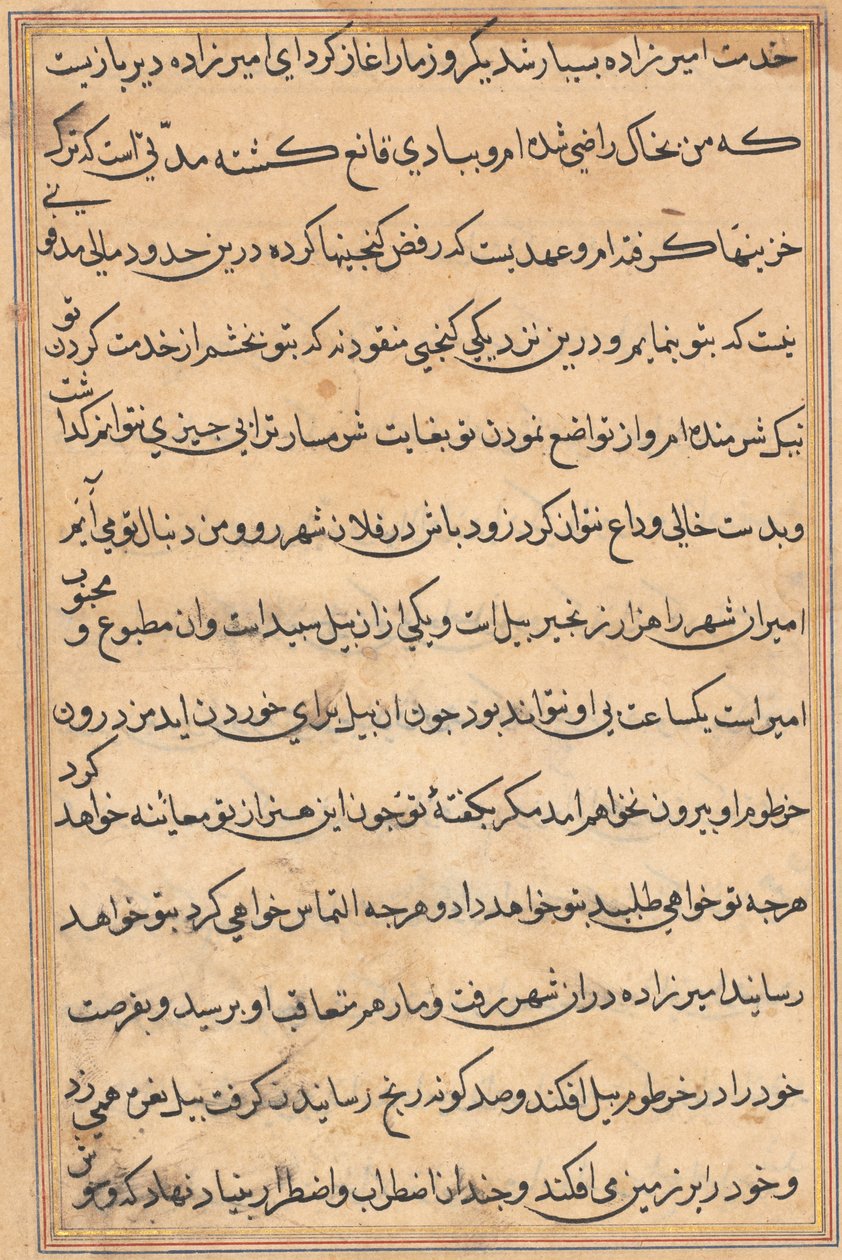 خدمت امیرزاده بسیار شد یکروز مار اغاز کرد ای امیرزاده دیر بازیست
که من بخاک راضی شده ام و ببادی قانع کشته مدّتی است که ترک
خزینها کرفته ام و عهدیست که رفض کنجینها کرده درین حدود مالی مدفونی
نیست که بتو بنمایم و درین نزدیکی کنجی منقود نه که بتو بخشم از خدمت کردن تو
نیک شرمنده ام و از تواضع نمودن تو بغایت شرمسار ترا بی جیزی نتوانم کذاشت
و بدست خالی وداع نتوان کرد زود باش در فلان شهر رو و من دنبال تو می آیم
امیر ان شهر را هزار زنجیر بیل است و یکی ازان بیل سبید است وان مطبوع و محبوب
امیر است یکساعت بی او نتواند بود جون ان بیل برای خوردن اید من درون
خرطوم او بیرون نخواهم امد مکر بکفتهٔ تو جون این هنر از تو معائنه خواهد کرد
هرجه تو خواهی طلبید بتو خواهد داد و هرجه التماس خواهی کرد بتو خواهد
رسانید امیرزاده دران شهر رفت و مار هم متعاقب او برسید و بفرصت
خود را در خرطوم بیل افکند و صد کونه رنج رسانیدن کرفت بیل نعره همی زد
و خود را بر زمین می افکند و جندان اضطراب و اضطرار بنیاد نهاد که وحوش